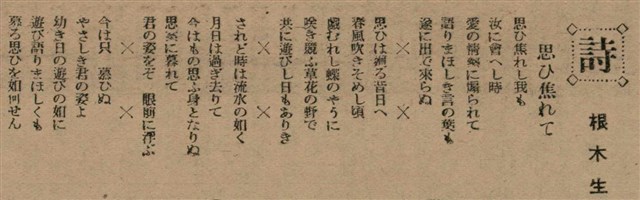 詩
根木生
思ひ焦れて
思ひ焦れし我も
汝に會へし時
愛の情熱に煽られて
語りまほしき言の葉も
遂に出で來らぬ
× ×
思ひは溯る昔日へ
春風吹きそめし頃
戯むれし蝶のやうに
咲き競ふ草花の野で
共に遊びし日もありき
× ×
されど時は流水の如く
月日は過ぎ去りて
今はもの思ふ身となりぬ
思案に暮れて
君の姿をぞ 眼前に浮ぶ
× ×
今は只 慕ひぬ
やさしき君の姿よ
幼き日の遊びの如に
遊び語りまほしくも
募る思ひを如何せん